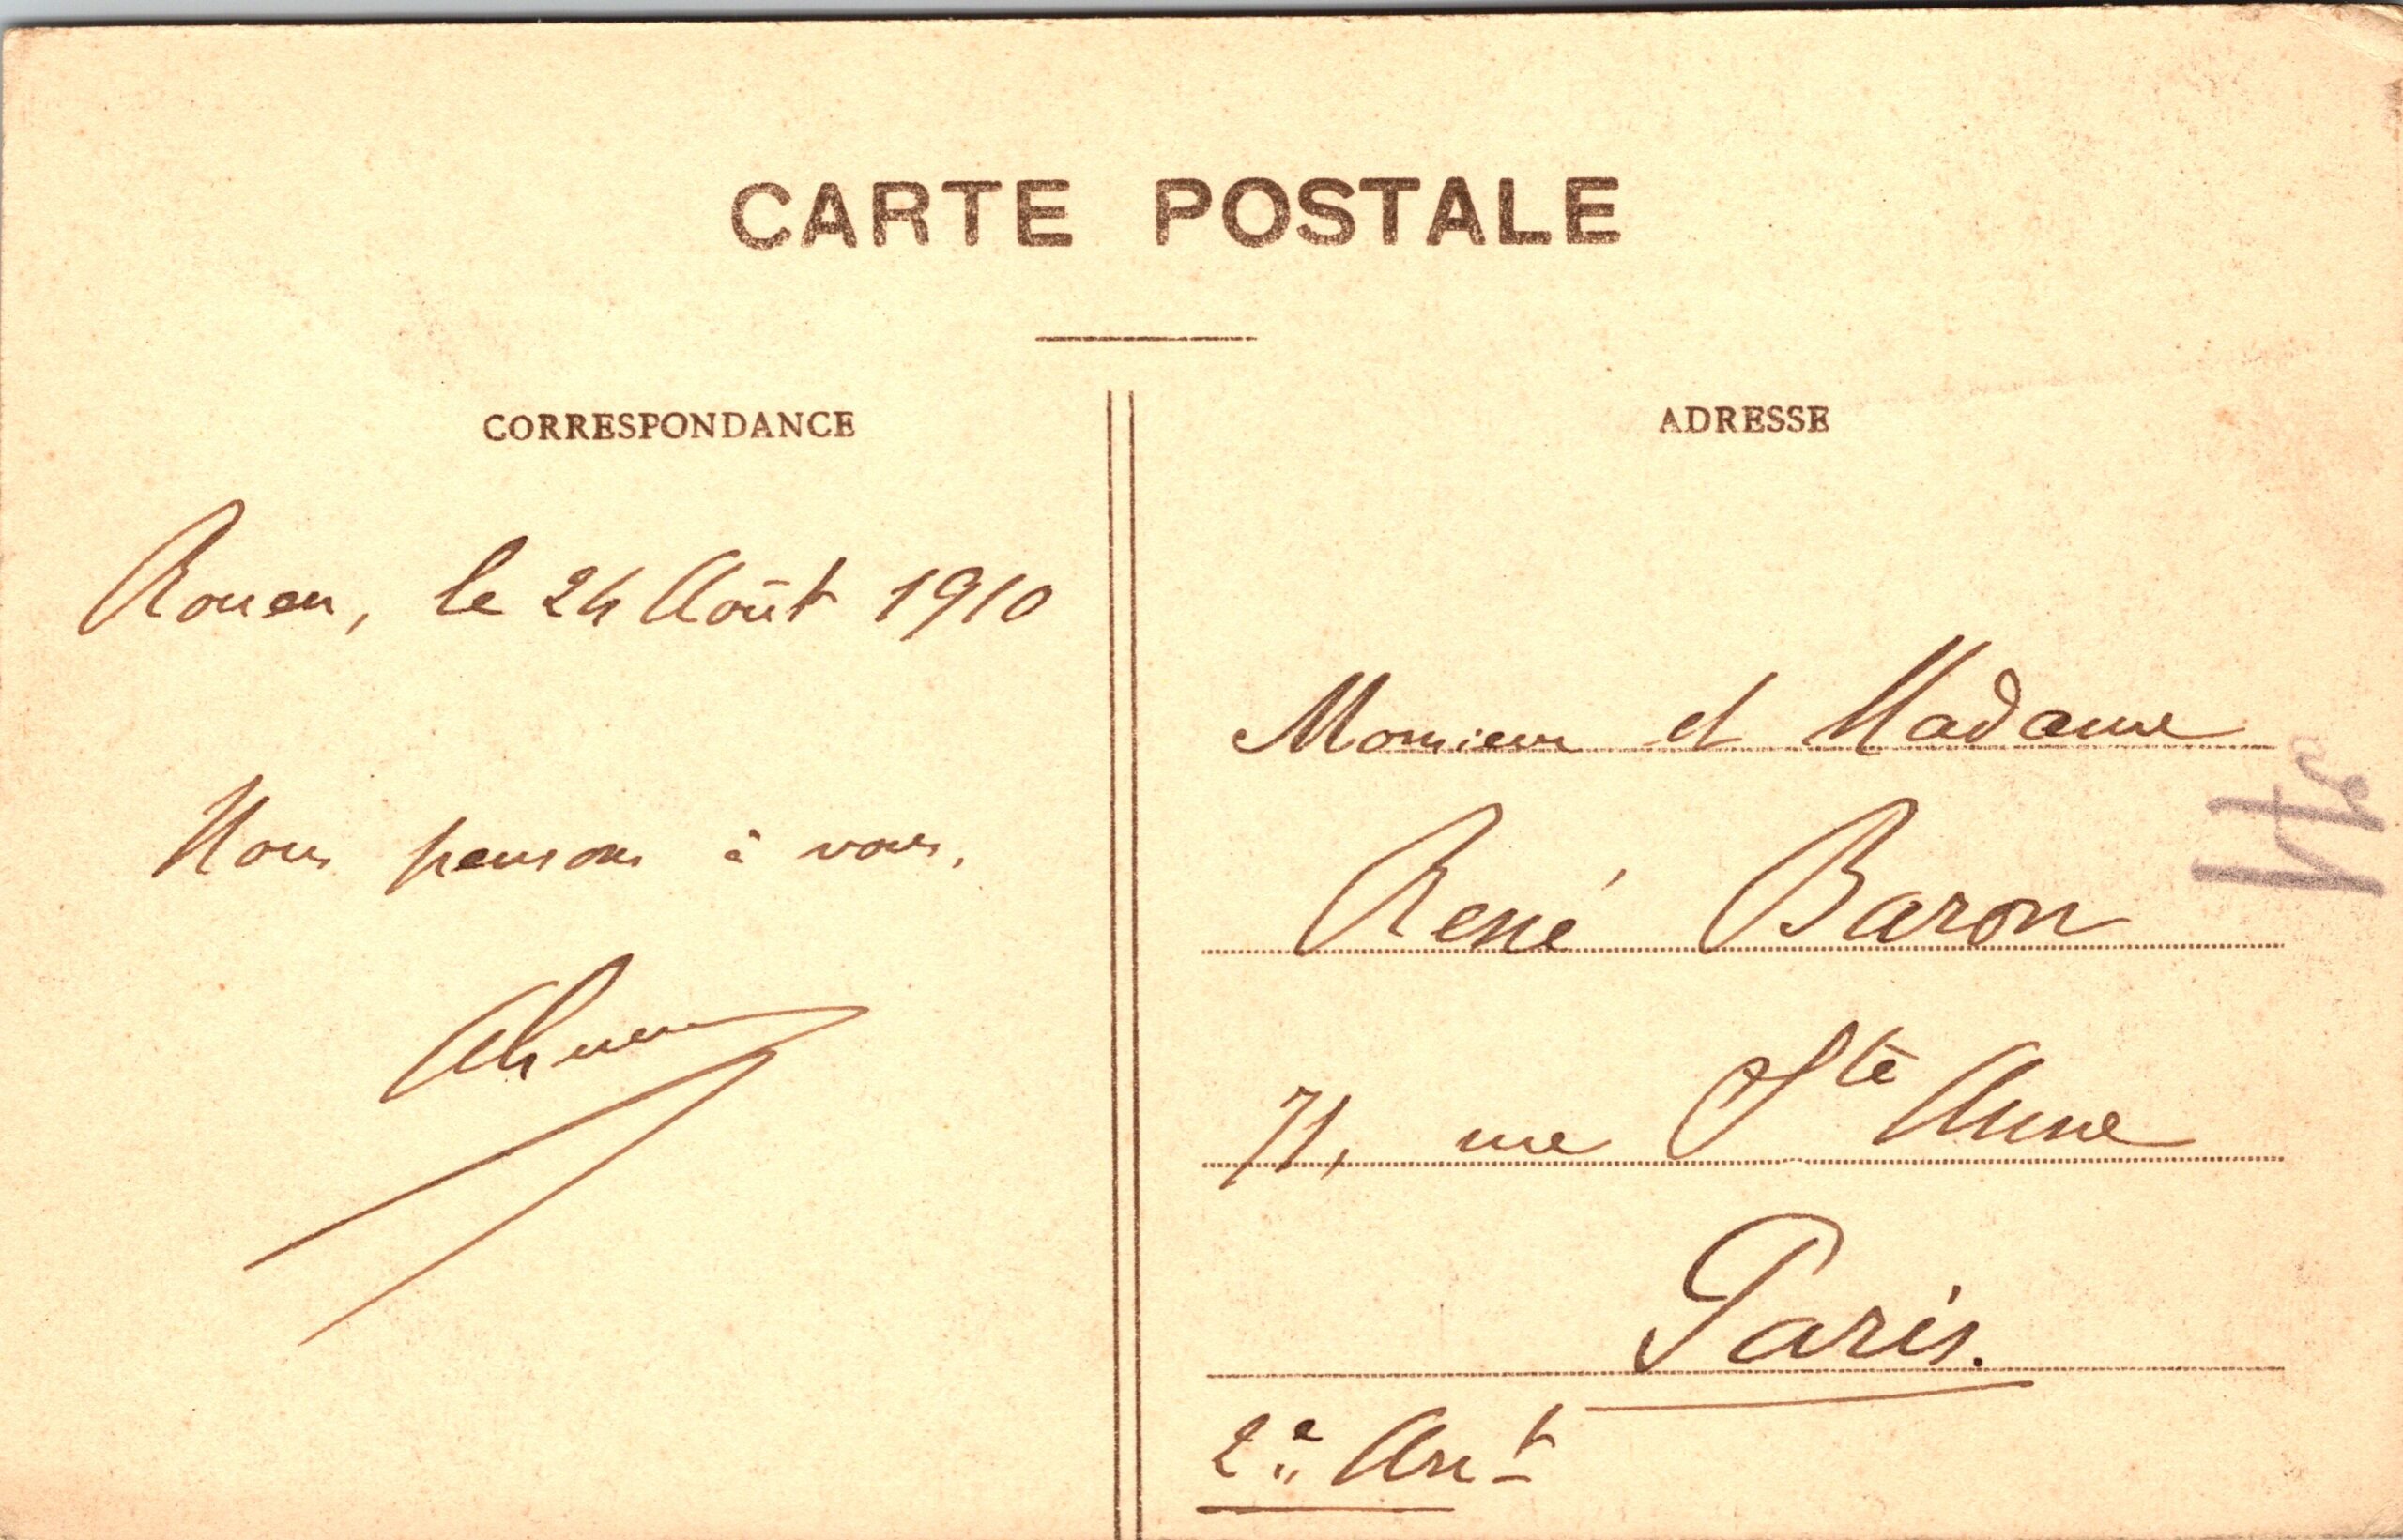 CARTE POSTALE
CORRESPONDANCE
Rouen, le 24 Août 1910
Nous pensons à vous.
ADRESSE
Monsieur et Madame
René Baron
71, rue Ste Anne
Paris.
2e Arrt